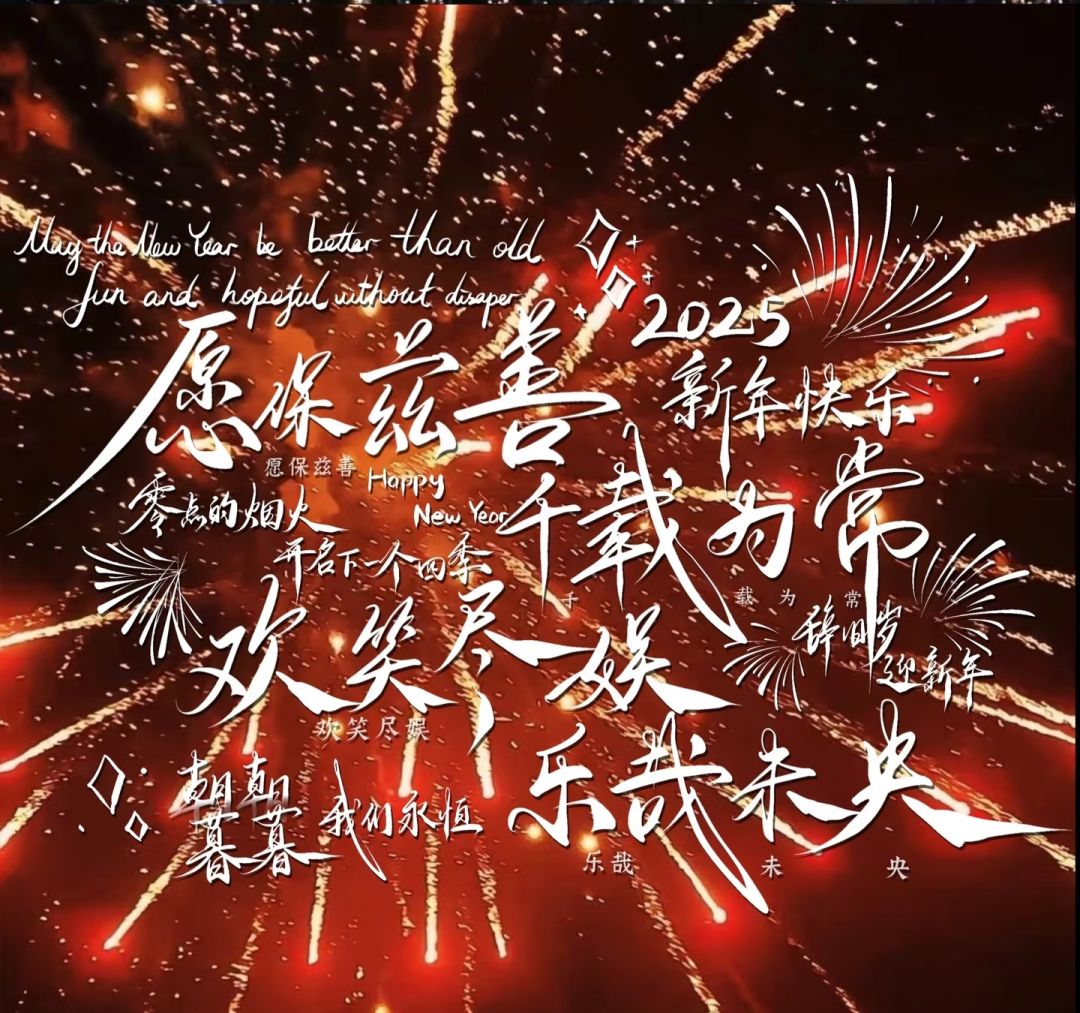 May the New Year be better than old
fun and hopeful without disaper
2025
新年快乐
愿保兹善
愿保兹善
Happy
New Year
千载为常
千载为常
零点的烟火
开启下一个四季
欢笑尽娱
欢笑尽娱
辞旧岁
迎新年
乐哉未央
乐哉未央
朝朝
暮暮
我们永恒